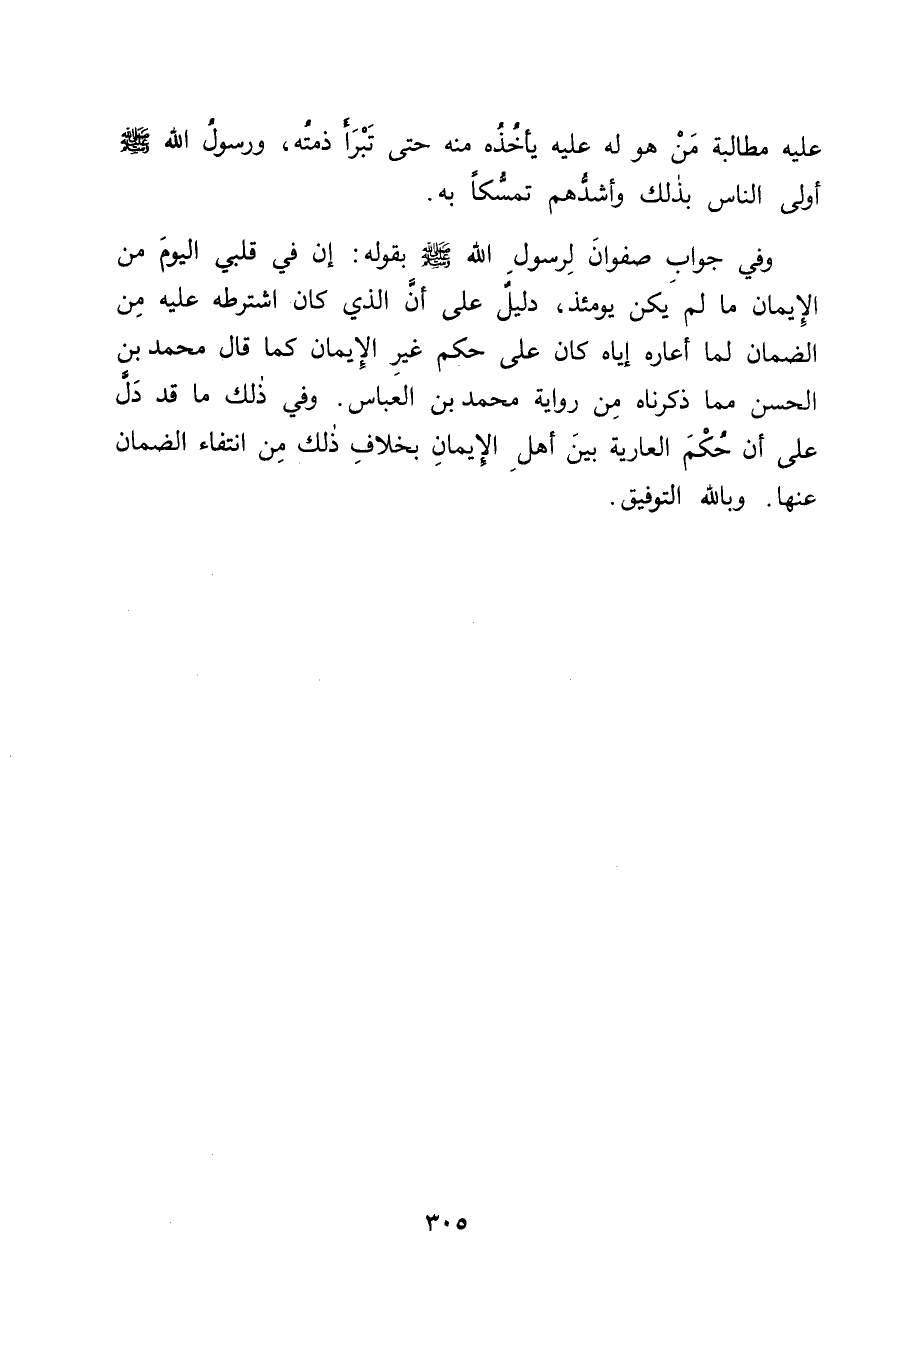 عليه مطالبة مَنْ هو له عليه يأخُذُه منه حتى تَبْرَأَ ذمتُه، ورسولُ الله ﷺ
أولى الناس بذٰلك وأشدُّهم تمسُّكاً به.
وفي جوابِ صفوانَ لِرسولِ الله ﷺ بقوله: إن في قلبي اليومَ من
الإِيمان ما لم يكن يومئذ، دليلٌ على أنَّ الذي كان اشترطه عليه مِن
الضمان لما أعاره إياه كان على حكم غيرِ الإِيمان كما قال محمد بن
الحسن مما ذكرناه مِن رواية محمد بن العباس. وفي ذٰلك ما قد دَلَّ
على أن حُكْمَ العارية بينَ أهلِ الإِيمانِ بخلافِ ذٰلك مِن انتفاء الضمان
عنها. وبالله التوفيق.
٣٠٥